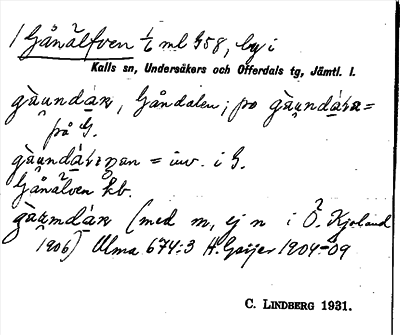 1 Gånälfven 1/6 ml G58, by i
Kalls sn, Undersåkers och Offerdals tg, Jämtl. l.
gàundàn, Gåndalen; po gàundàra =
på G.
= inv. i G.
Gånälven kb.
gàumdàn (med m, ej n i Ö. Kjoland
1906) Ulma 674:3 H. Geijer 1904-09
C. LINDBERG 1931.